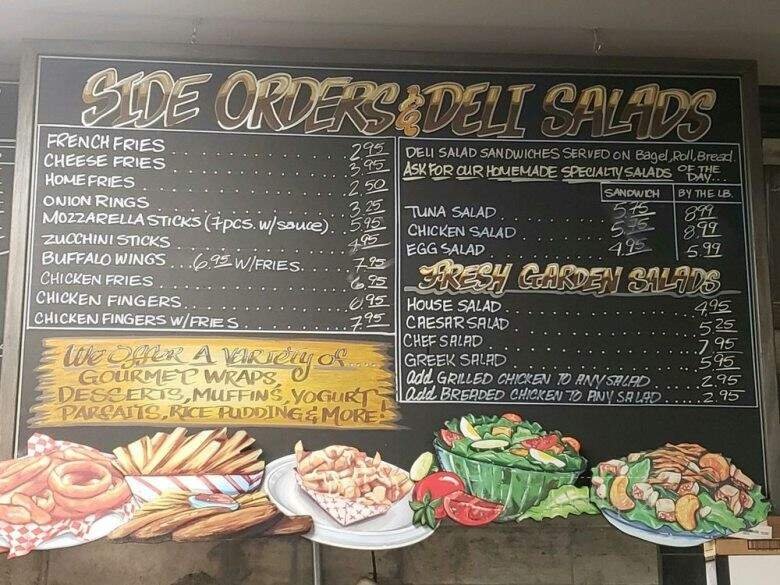 SIDE ORDERS & DELI SALADS
FRENCH FRIES 2.95
CHEESE FRIES 3.95
HOME FRIES 2.50
ONION RINGS 3.25
MOZZARELLA STICKS (7pcs. w/sauce) 5.95
ZUCCHINI STICKS 4.95
BUFFALO WINGS 6.95 W/FRIES 7.95
CHICKEN FRIES 6.95
CHICKEN FINGERS 6.95
CHICKEN FINGERS W/FRIES 7.95
We Offer A Variety of....
GOURMET WRAPS,
DESSERTS, MUFFINS, YOGURT
PARFAITS, RICE PUDDING & MORE!
DELI SALAD SANDWICHES SERVED ON Bagel, Roll, Bread.
ASK FOR OUR HOMEMADE SPECIALTY SALADS OF THE DAY...
SANDWICH BY THE LB.
TUNA SALAD 5.75 8.99
CHICKEN SALAD 5.75 8.99
EGG SALAD 4.95 5.99
FRESH GARDEN SALADS
HOUSE SALAD 4.95
CAESAR SALAD 5.25
CHEF SALAD 7.95
GREEK SALAD 5.95
add GRILLED CHICKEN TO ANY SALAD 2.95
add BREADED CHICKEN TO ANY SALAD 2.95